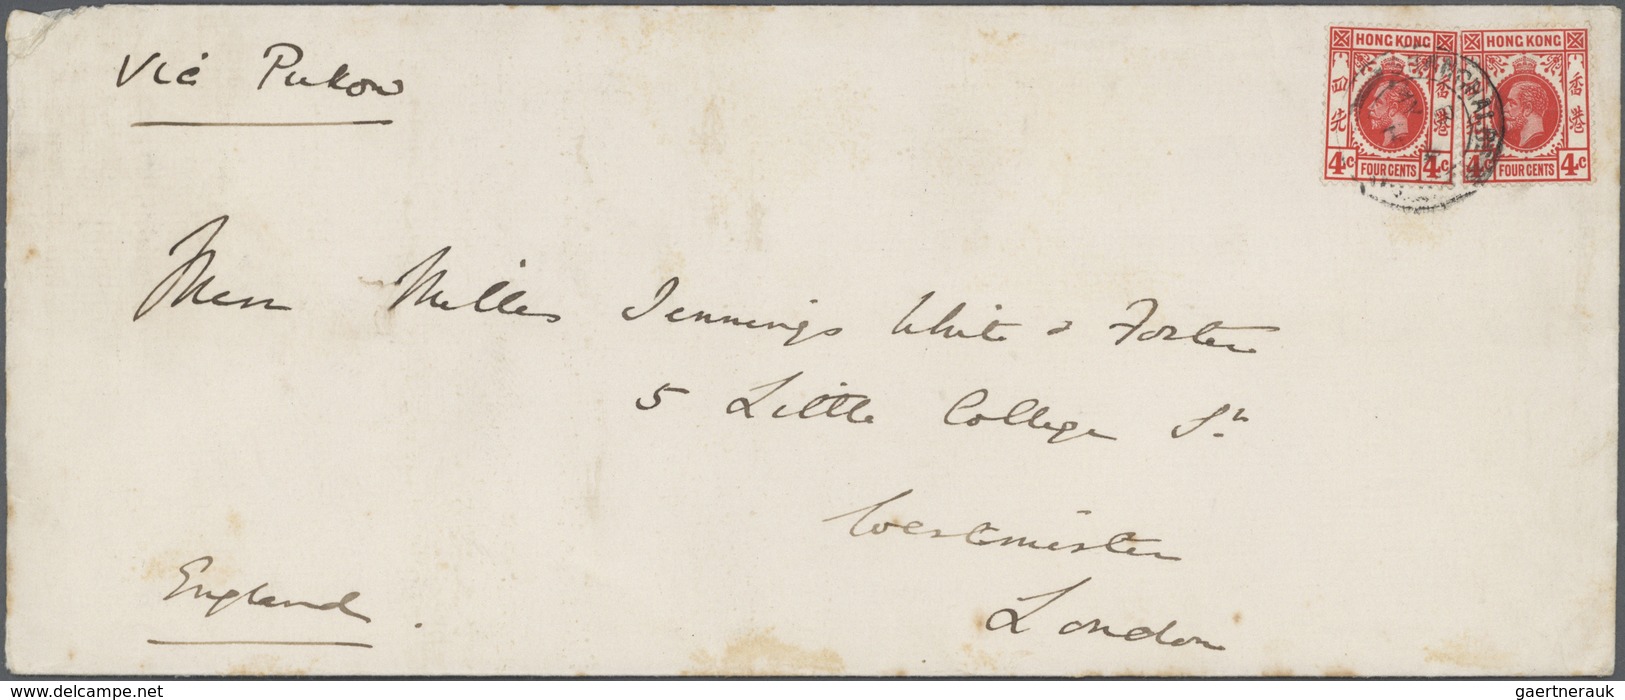 Via Pukow
HONG KONG
四先
香港
4c FOUR CENTS 4c
HONG KONG
香港
4c FOUR CENTS 4c
SHANGHAI
Messrs Milles Jennings White & Foster
5 Little College St
Westminster
London
England.
delcampe.net
gaertnerauk